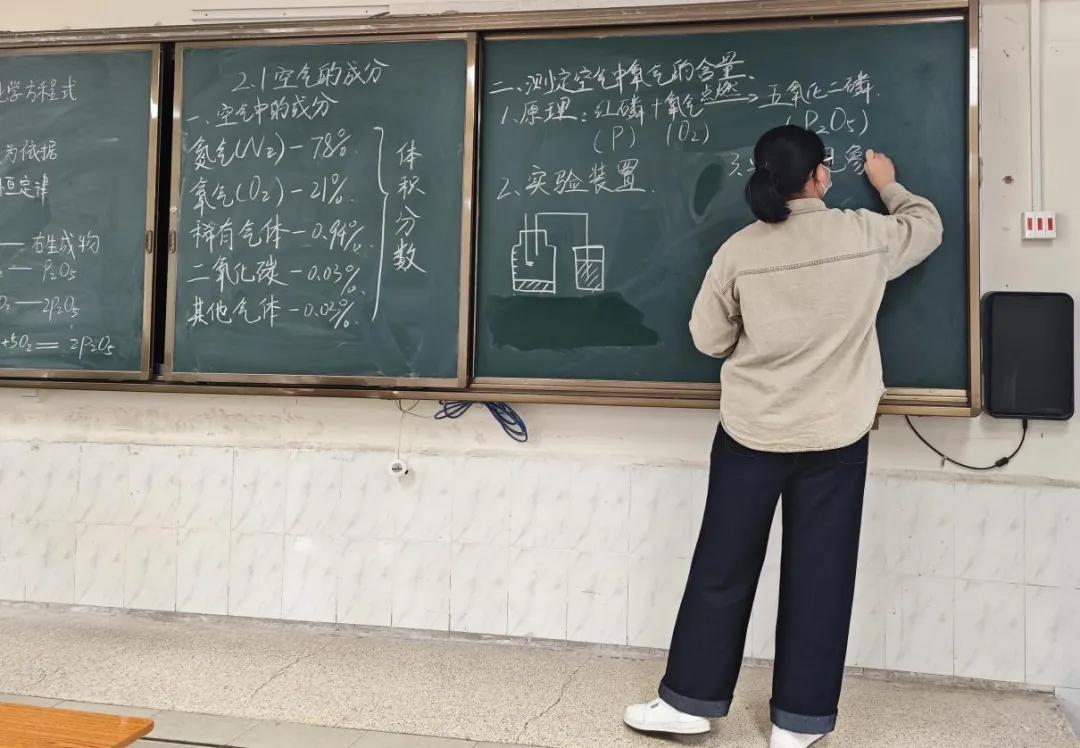 学方程式
为依据
恒定律
—— 右生成物
— P₂O₅
O₂ — 2P₂O₅
+5O₂ == 2P₂O₅
2.1 空气的成分
一、空气中的成分
氮气(N₂) - 78%
氧气(O₂) - 21%
稀有气体 - 0.94%
二氧化碳 - 0.03%
其他气体 - 0.03%
体积分数
二、测定空气中氧气的含量
1.原理：红磷 + 氧气 点燃→ 五氧化二磷
(P) (O₂) (P₂O₅)
2、实验装置
3、